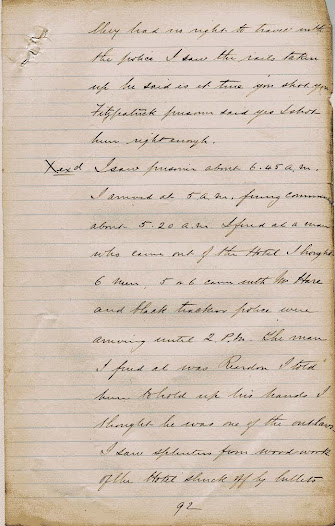 they had no right to travel with
the police I saw the rails taken
up he said is it true you shot
Fitzpatrick prisoner said yes I shot
him right enough.
Xxxd I saw prisoner about 6.45 a.m.
I arrived at 5 a.m. firing commenced
about 5.20 a.m. I fired at a man
who came out of the Hotel I brought
6 men, 5 or 6 came with Mr Hare
and black trackers police were
arriving until 2 P.M. The man
I fired at was Reardon I told
him to hold up his hands I
thought he was one of the outlaws
I saw splinters from wood work
of the Hotel struck off by bullets
92